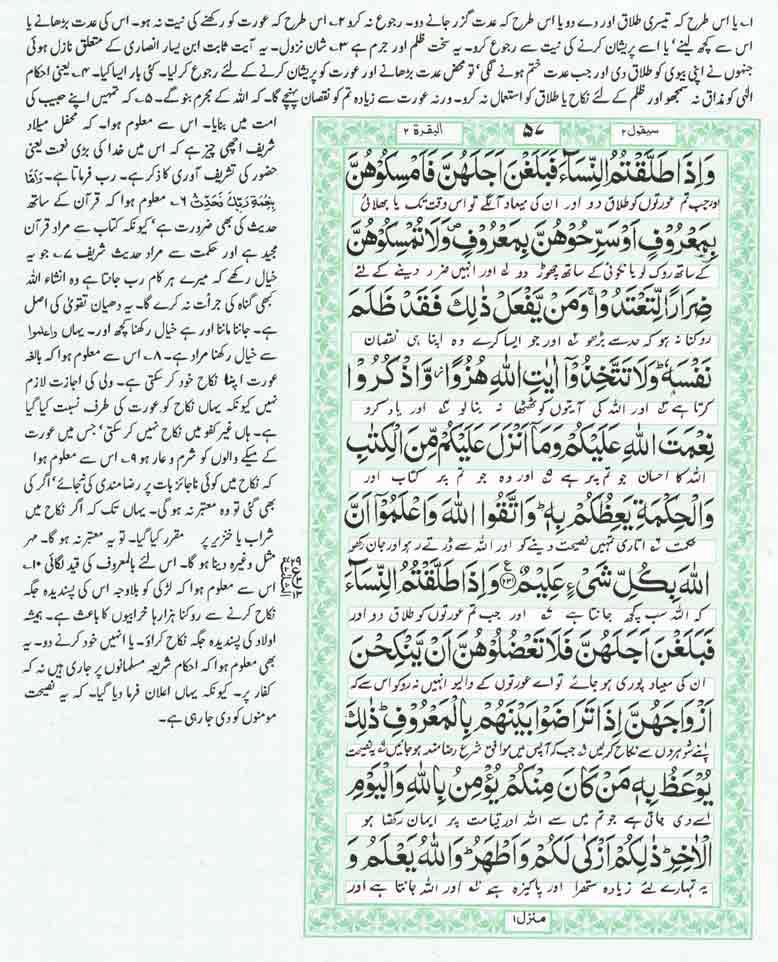 ۱؎ یا اس طرح کہ تیسری طلاق اور دے دو یا اس طرح کہ عدت گزر جانے دو۔ رجوع نہ کرو ۲؎ اس طرح کہ عورت کو رکھنے کی نیت نہ ہو۔ اس کی عدت بڑھانے یا
اس سے کچھ لینے' یا اسے پریشان کرنے کی نیت سے رجوع کرو۔ یہ سخت ظلم اور جرم ہے ۳؎ شان نزول۔ یہ آیت ثابت ابن یسار انصاری کے متعلق نازل ہوئی
جنہوں نے اپنی بیوی کو طلاق دی اور جب عدت ختم ہونے لگی' تو محض عدت بڑھانے اور عورت کو پریشان کرنے کے لئے رجوع کر لیا۔ کئی بار ایسا کیا۔ ۴؎ یعنی احکام
الٰہی کو مذاق نہ سمجھو اور ظلم کے لئے نکاح یا طلاق کو استعمال نہ کرو۔ ورنہ عورت سے زیادہ تم کو نقصان پہنچے گا۔ کہ اللہ کے مجرم بنو گے۔ ۵؎ کہ تمہیں اپنے حبیب کی
امت میں بنایا۔ اس سے معلوم ہوا۔ کہ محفل میلاد
شریف اچھی چیز ہے کہ اس میں خدا کی بڑی نعمت یعنی
حضور کی تشریف آوری کا ذکر ہے۔ رب فرماتا ہے۔ وَاَمَّا
بِنِعْمَةِ رَبِّكَ فَحَدِّثْ ۶؎ معلوم ہوا کہ قرآن کے ساتھ
حدیث کی بھی ضرورت ہے' کیونکہ کتاب سے مراد قرآن
مجید ہے اور حکمت سے مراد حدیث شریف ۷؎ جو یہ
خیال رکھے کہ میرے ہر کام رب جانتا ہے وہ انشاء اللہ
کبھی گناہ کی جرأت نہ کرے گا۔ یہ دھیان تقویٰ کی اصل
ہے۔ جاننا ماننا اور ہے خیال رکھنا کچھ اور۔ یہاں واعلموا
سے خیال رکھنا مراد ہے۔ ۸؎ اس سے معلوم ہوا کہ بالغہ
عورت اپنا نکاح خود کر سکتی ہے۔ ولی کی اجازت لازم
نہیں کیونکہ یہاں نکاح کو عورت کی طرف نسبت کیا گیا
ہے۔ ہاں غیر کفو میں نکاح نہیں کر سکتی' جس میں عورت
کے میکے والوں کو شرم و عار ہو ۹؎ اس سے معلوم ہوا
کہ نکاح میں کوئی ناجائز بات پر رضامندی کی جائے' اگر کی
بھی گئی تو وہ معتبر نہ ہوگی۔ یہاں تک کہ اگر نکاح میں
شراب یا خنزیر پر مقرر کیا گیا۔ تو یہ معتبر نہ ہو گا۔ مہر
مثل وغیرہ دینا ہو گا۔ اس لئے بالمعروف کی قید لگائی ۱۰؎
اس سے معلوم ہوا کہ لڑکی کو بلاوجہ اس کی پسندیدہ جگہ
نکاح کرنے سے روکنا ہزارہا خرابیوں کا باعث ہے۔ ہمیشہ
اولاد کی پسندیدہ جگہ نکاح کراؤ۔ یا انہیں خود کرنے دو۔ یہ
بھی معلوم ہوا کہ احکام شریعہ مسلمانوں پر جاری ہیں نہ کہ
کفار پر۔ کیونکہ یہاں اعلان فرما دیا گیا۔ کہ یہ نصیحت
مومنوں کو دی جا رہی ہے۔
سيقول ٢
٥٧
البقرة ٢
وَاِذَا طَلَّقْتُمُ النِّسَآءَ فَبَلَغْنَ اَجَلَهُنَّ فَاَمْسِكُوْهُنَّ
اور جب تم عورتوں کو طلاق دو اور ان کی میعاد آلگے تو اس وقت تک یا بھلائی
بِمَعْرُوْفٍ اَوْ سَرِّحُوْهُنَّ بِمَعْرُوْفٍ ۪ وَلَا تُمْسِكُوْهُنَّ
کے ساتھ روک لو یا نکوئی کے ساتھ چھوڑ دو اور انہیں ضرر دینے کے لئے
ضِرَارًا لِّتَعْتَدُوْا ۚ وَمَنْ يَّفْعَلْ ذٰلِكَ فَقَدْ ظَلَمَ
روکنا نہ ہو کہ حد سے بڑھو اور جو ایسا کرے وہ اپنا ہی نقصان
نَفْسَهٗ ؕ وَلَا تَتَّخِذُوْٓا اٰيٰتِ اللّٰهِ هُزُوًا ۡ وَّاذْكُرُوْا
کرتا ہے اور اللہ کی آیتوں کو ٹھٹھا نہ بنا لو اور یاد کرو
نِعْمَتَ اللّٰهِ عَلَيْكُمْ وَمَآ اَنْزَلَ عَلَيْكُمْ مِّنَ الْكِتٰبِ
اللہ کا احسان جو تم پر ہے اور وہ جو تم پر کتاب اور
وَالْحِكْمَةِ يَعِظُكُمْ بِهٖ ؕ وَاتَّقُوا اللّٰهَ وَاعْلَمُوْٓا اَنَّ
حکمت اتاری تمہیں نصیحت دینے کو اور اللہ سے ڈرتے رہو اور جان رکھو
اللّٰهَ بِكُلِّ شَىْءٍ عَلِيْمٌ ﴿٢٣١﴾ وَاِذَا طَلَّقْتُمُ النِّسَآءَ
کہ اللہ سب کچھ جانتا ہے اور جب تم عورتوں کو طلاق دو اور
فَبَلَغْنَ اَجَلَهُنَّ فَلَا تَعْضُلُوْهُنَّ اَنْ يَّنْكِحْنَ
ان کی میعاد پوری ہو جائے تو اے عورتوں کے والیو انہیں نہ روکو اس سے کہ
اَزْوَاجَهُنَّ اِذَا تَرَاضَوْا بَيْنَهُمْ بِالْمَعْرُوْفِ ؕ ذٰلِكَ
اپنے شوہروں سے نکاح کرلیں جب کہ آپس میں موافق شرع رضا مند ہو جائیں یہ نصیحت
يُوْعَظُ بِهٖ مَنْ كَانَ مِنْكُمْ يُؤْمِنُ بِاللّٰهِ وَالْيَوْمِ
اسے دی جاتی ہے جو تم میں سے اللہ اور قیامت پر ایمان رکھتا ہو
الْاٰخِرِ ؕ ذٰلِكُمْ اَزْكٰى لَكُمْ وَاَطْهَرُ ؕ وَاللّٰهُ يَعْلَمُ وَ
یہ تمہارے لئے زیادہ ستھرا اور پاکیزہ ہے اور اللہ جانتا ہے اور
منزل ١